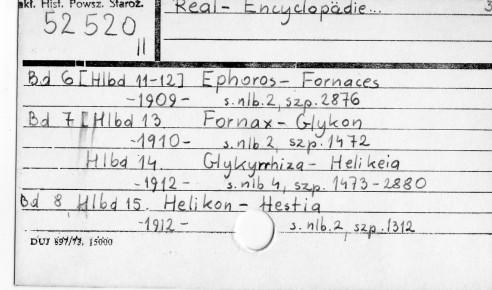 akt. Hist. Powsz. Staroż.
Real- Encyclopädie...
52 520
II
Bd 6 [Hlbd 11-12] Ephoros- Fornaces
-1909- s.nlb.2, szp.2876
Bd 7 [Hlbd 13 Fornax- Glykon
-1910- s.nlb 2, szp.1472
Hlbd 14. Glykyrrhiza- Helikeia
-1912- s.nlb 4, szp. 1473-2880
Bd 8 Hlbd 15. Helikon- Hestia
-1912- s.nlb.2, szp.1312
DUJ 897/73. 15000